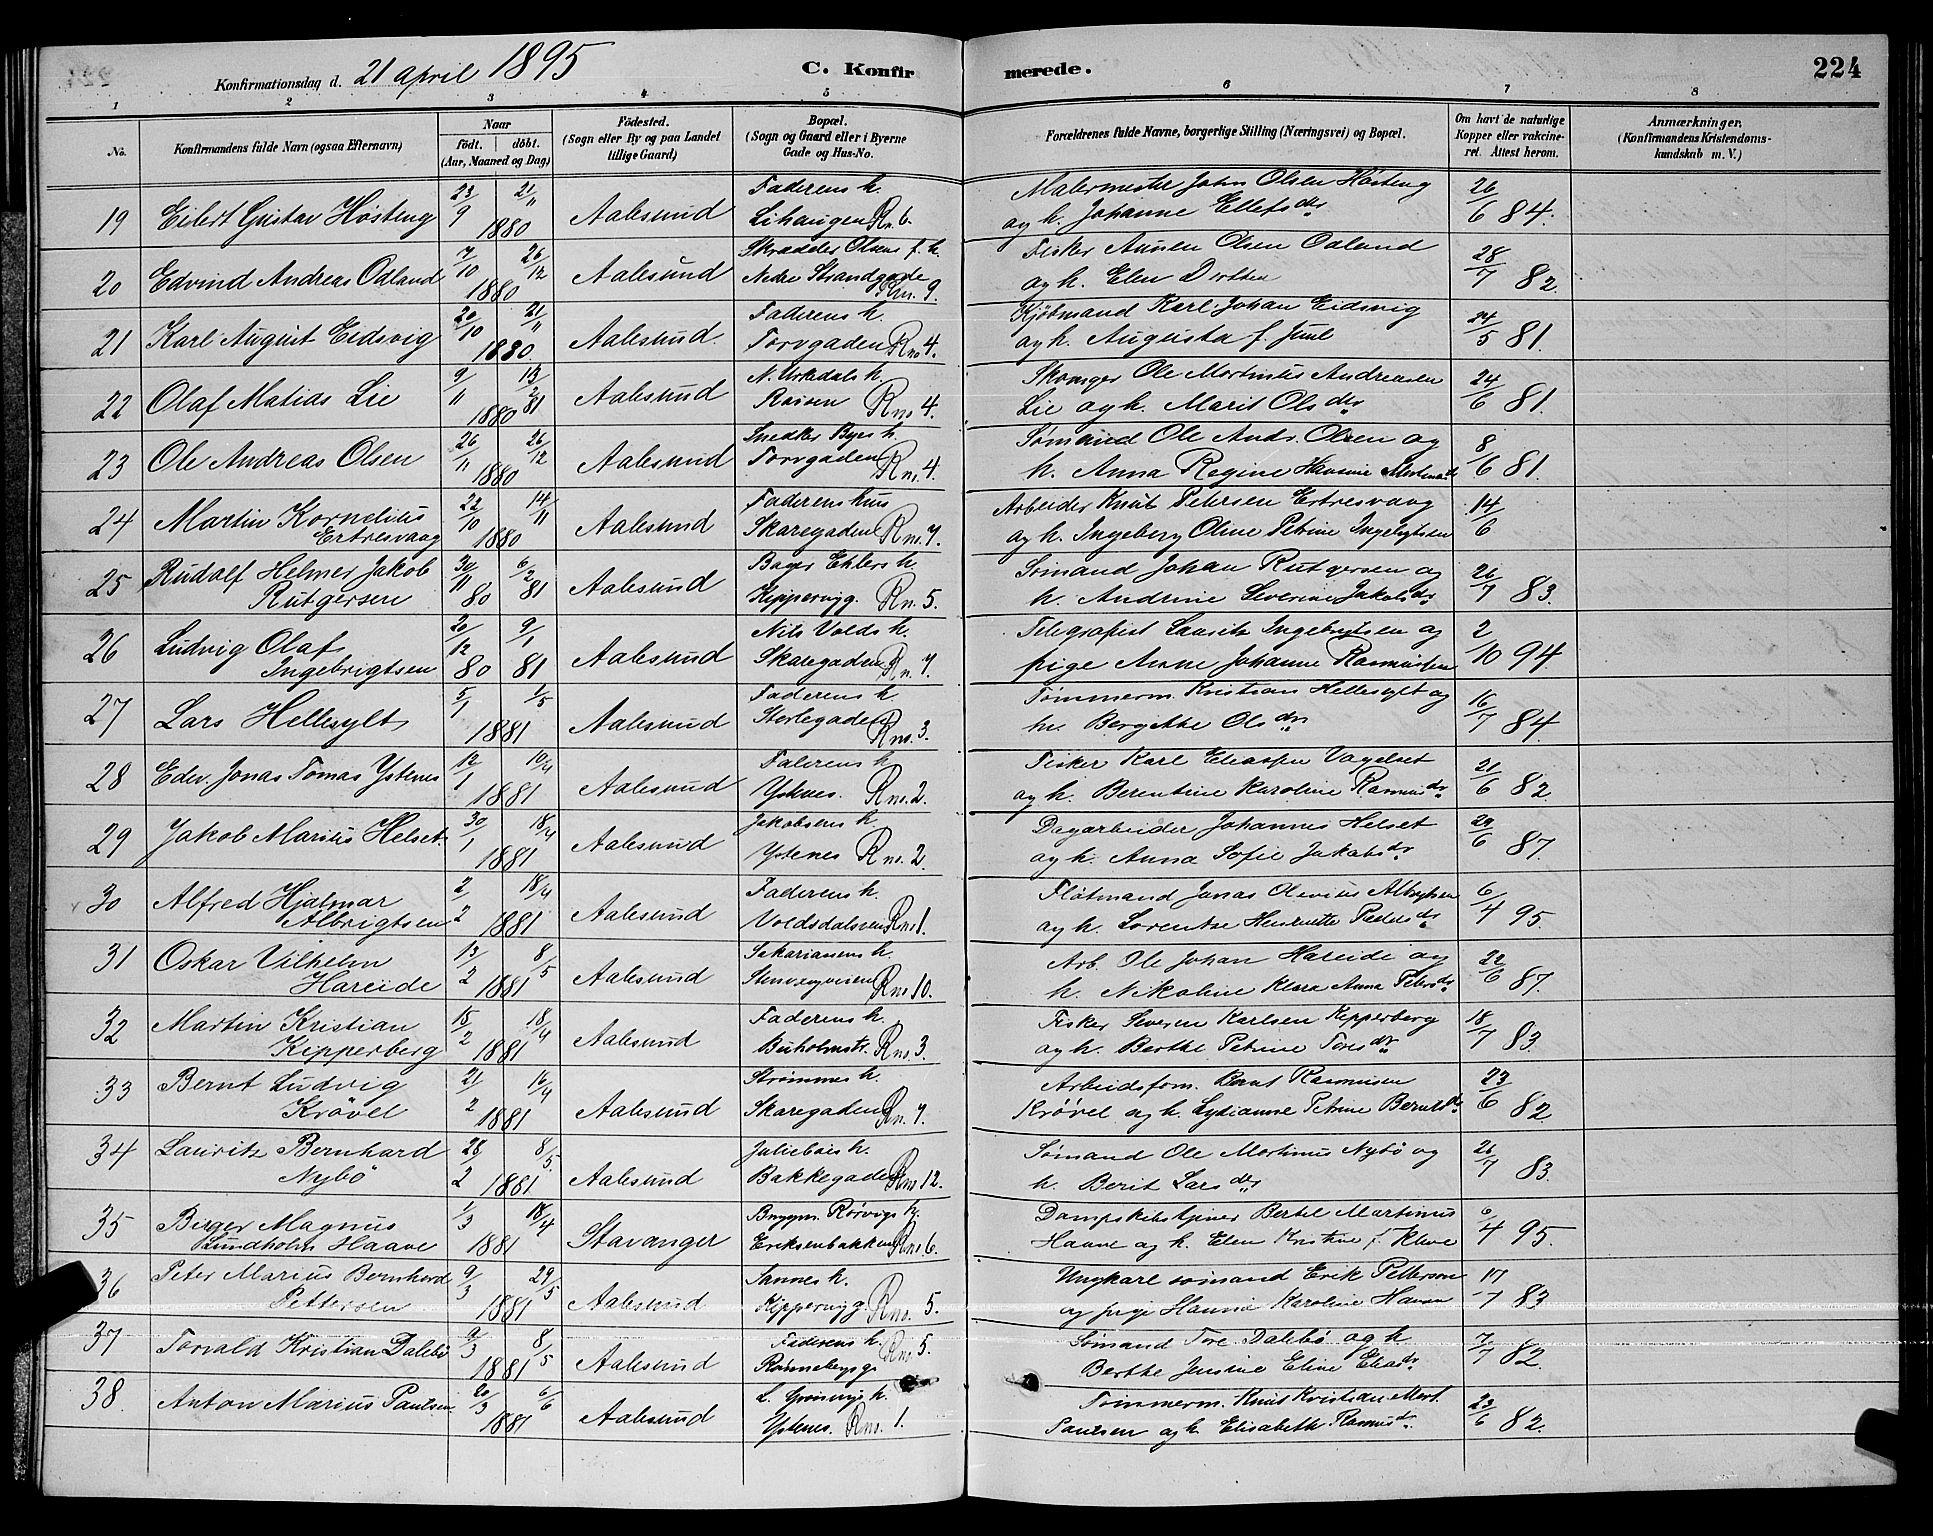 Konfirmationsdag d. 21 April 1895
C. Konfirmerede.
224
1 2 3 4 5 6 7 8
No.
Konfirmandens fulde Navn (ogsaa Efternavn)
Naar födt. döbt. (Aar, Maaned og Dag)
Födested. (Sogn eller By og paa Landet tillige Gaard)
Bopæl. (Sogn og Gaard eller i Byerne Gade og Hus-No.
Forældrenes fulde Navne, borgerlige Stilling (Næringsvei) og Bopæl.
Om havt de naturlige Kopper eller vakcineret. Attest herom.
Anmærkninger, (Konfirmandens Kristendomskundskab m. V.)
19 Eilert Gustav Hösteng 23/9 21/11 1880 Aalesund Faderens h. Lihaugen Rn. 6. Malermester John Olsen Hösteng og h. Johanne Ellefsdr 26/6 84.
20 Edvind Andreas Odland 7/10 26/12 1880 Aalesund Skrædder Olsens f. h. Nedre Strandgade Rn. 9. Fisker Olsen Odland og h. Elen Dorthea 28/7 82
21 Karl August Eidsvig 20/10 21/11 1880. Aalesund. Faderens h. Torvgaden Rno 4. Kjöbmand Karl Johan Eidsvig og h. Augusta f. Juul 24/5 81.
22 Olaf Matias Lie 9/11 1880 13/2 81 Aalesund N. h. Rno 4. Skomager Ole Martinus Andreasen Lie og h. Marit Olsdr 24/6 81.
23 Ole Andreas Olsen 26/11 26/12 1880 Aalesund Snedker Byes h. Torvgaden Rn. 4. Sömand Ole Andr. Olsen og h. Anna Regine Hansine 8/6 81.
24 Martin Kornelius Ertresvaag 22/10 14/11 1880 Aalesund Faderens hus Skaregaden Rno. 7. Arbeider Knut Petersen Ertresvaag og h. Ingeborg Oline Petrine Ingebrigtsen 14/6
25 Rudolf Helmer Jakob Rutgersen 30/11 80 6/2 81 Aalesund Bager Ehlers h. Kippervig. Rn. 5. Sömand Johan Rutgersen og h. Andrine Severine Jakobsdr 26/7 83.
26 Ludvig Olaf Ingebrigtsen 20/12 80 9/1 81 Aalesund Nils Volds h. Skaregaden Rn. 7. Telegrafist Lauritz Ingebrigtsen og pige Anne Johanne Rasmussen 2/10 94
27 Lars Hellesylt 5/1 1/5 1881 Aalesund Faderens h. Storlegaden Rno. 3. Tömmerm. Kristian Hellesylt og h. Bergitte Olsdr 16/7 84.
28 Edv. Jonas Tomas Ystenes 12/1 10/4 1881 Aalesund Faderens h. Ystenes. Rno. 2. Fisker Karl Eliassen Vagelset og h. Berentine Karoline Rasmusdr 21/6 82.
29 Jakob Marius Helset. 30/1 18/4 1881 Aalesund Jakobsens h Ystenes Rno. 2. Dagarbeider Johannes Helset og h. Anna Sofie Jakobsdr 29/6 87.
30 Alfred Hjalmar Albrigtsen 2/2 18/4 1881 Aalesund Faderens h. Voldsdalsveien Rno 1. Flötmand Jonas Olevius Albrigtsen og h. Lorentse Henriette Pedersdr 6/4 95.
31 Oskar Vilhelm Hareide 13/2 8/5 1881 Aalesund Sakariasens h. Rno 10. Arb. Ole Johan Hareide og h. Nikoline Klara Anna Petersdr 22/6 87.
32 Martin Kristian Kipperberg 15/2 18/4 1881 Aalesund Faderens h. Buholmstr. Rno. 3. Fisker Severin Karlsen Kipperberg og h. Berthe Petrine Toresdr 18/7 83.
33 Bernt Ludvig Krövel 21/2 16/4 1881 Aalesund Strömmes h. Skaregaden Rn. 7. Arbeidsform. Bernt Rasmusen Krövel og h. Lydianne Petrine Berntsdr 23/6 82.
34 Lauritz Bernhard Nybö 28/2 8/5 1881 Aalesund Juliebös h. Bakkegaden Rno 12. Sömand Ole Martinus Nybö og h. Berit Larsdr 26/7 83.
35 Birger Magnus Lundholm Haave 1/3 18/4 1881 Stavanger Bygm. Rörvigs h. Eriksenbakken Rno 6. Dampskibstjener Bertel Martinus Haave og h. Elen Kristine f. 6/4 95.
36 Peter Marius Bernhard Pettersen 9/3 29/5 1881 Aalesund Sannes h. Kippervig. Rno. 5. Ungkarl sömand Erik Petterson og pige Hanne Karoline Hansen 17/7 83
37 Torvald Kristian Dalebö 9/3 8/5 1881 Aalesund Faderens h. Rno 5. Rönnebergsg. Sömand Tore Dalebö og h Berthe Jensine Eline Eliasdr. 7/7 82.
38. Anton Marius Paulsen 20/3 6/6 1881 Aalesund L. h. Ystenes. Rno. 1. Tömmerm. Knut Kristian Mart. Paulsen og h. Elisabeth Rasmusdr. 23/6 82.